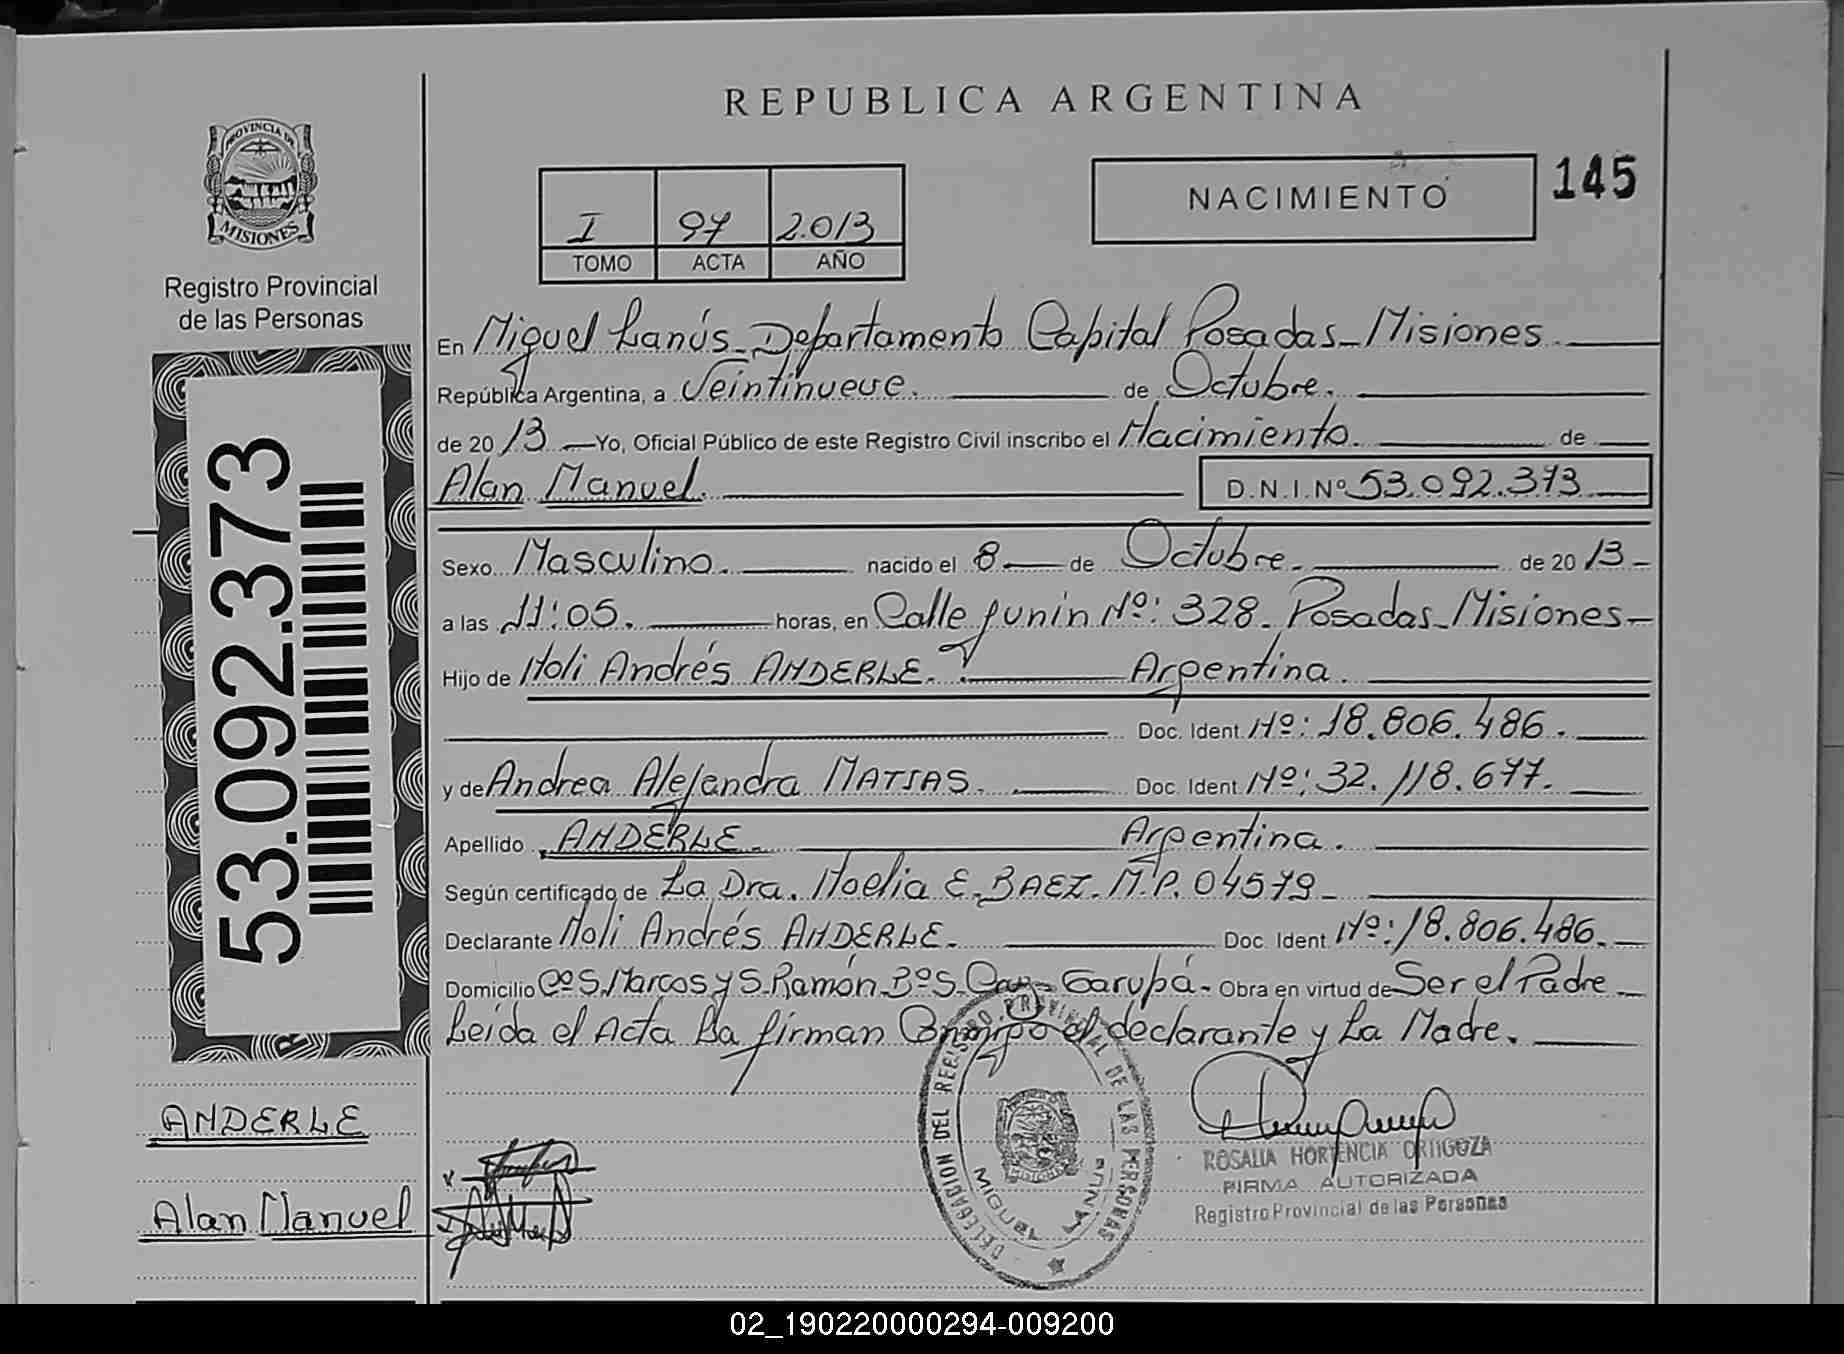 REPUBLICA ARGENTINA
PROVINCIA DE
MISIONES
Registro Provincial
de las Personas
I 97 2.013
TOMO ACTA AÑO
NACIMIENTO
145
En Miguel Lanús - Departamento Capital Posadas - Misiones.
República Argentina, a Veintinueve. de Octubre.
de 20 13 Yo, Oficial Público de este Registro Civil inscribo el Nacimiento. de
Alan Manuel. D.N.I.Nº 53.092.373
Sexo Masculino. nacido el 8 de Octubre. de 20 13
a las 11:05. horas, en Calle Junín Nº: 328 - Posadas - Misiones -
Hijo de Noli Andrés ANDERLE. Argentina.
Doc. Ident. Nº: 18.806.486.
y de Andrea Alejandra MATIAS. Doc. Ident. Nº: 32.118.677.
Apellido ANDERLE. Argentina.
Según certificado de La Dra. Noelia E. BAEZ. M.P. 04579 -
Declarante Noli Andrés ANDERLE. Doc. Ident. Nº: 18.806.486.
Domicilio Cº S. Marcos y S. Ramón Bº S. Cay - Garupá - Obra en virtud de Ser el Padre
Leida el Acta La firman Conmigo el declarante y La Madre.
53.092.373
ANDERLE
Alan Manuel
DELEGACION DEL REGISTRO PROVINCIAL DE LAS PERSONAS
MIGUEL LANUS
ROSALIA HORTENCIA ORTIGOZA
FIRMA AUTORIZADA
Registro Provincial de las Personas
02_190220000294-009200